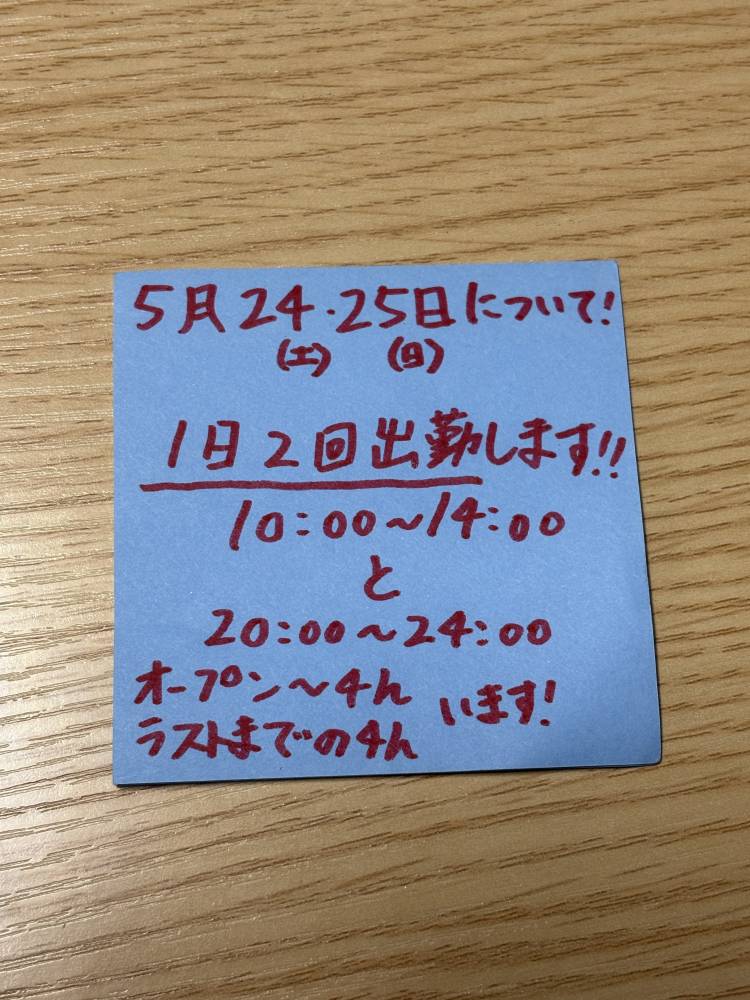 5月24・25日について!
(土) (日)
1日2回出勤します!!
10:00~14:00
と
20:00~24:00
オープン~4h
ラストまでの4h
います!